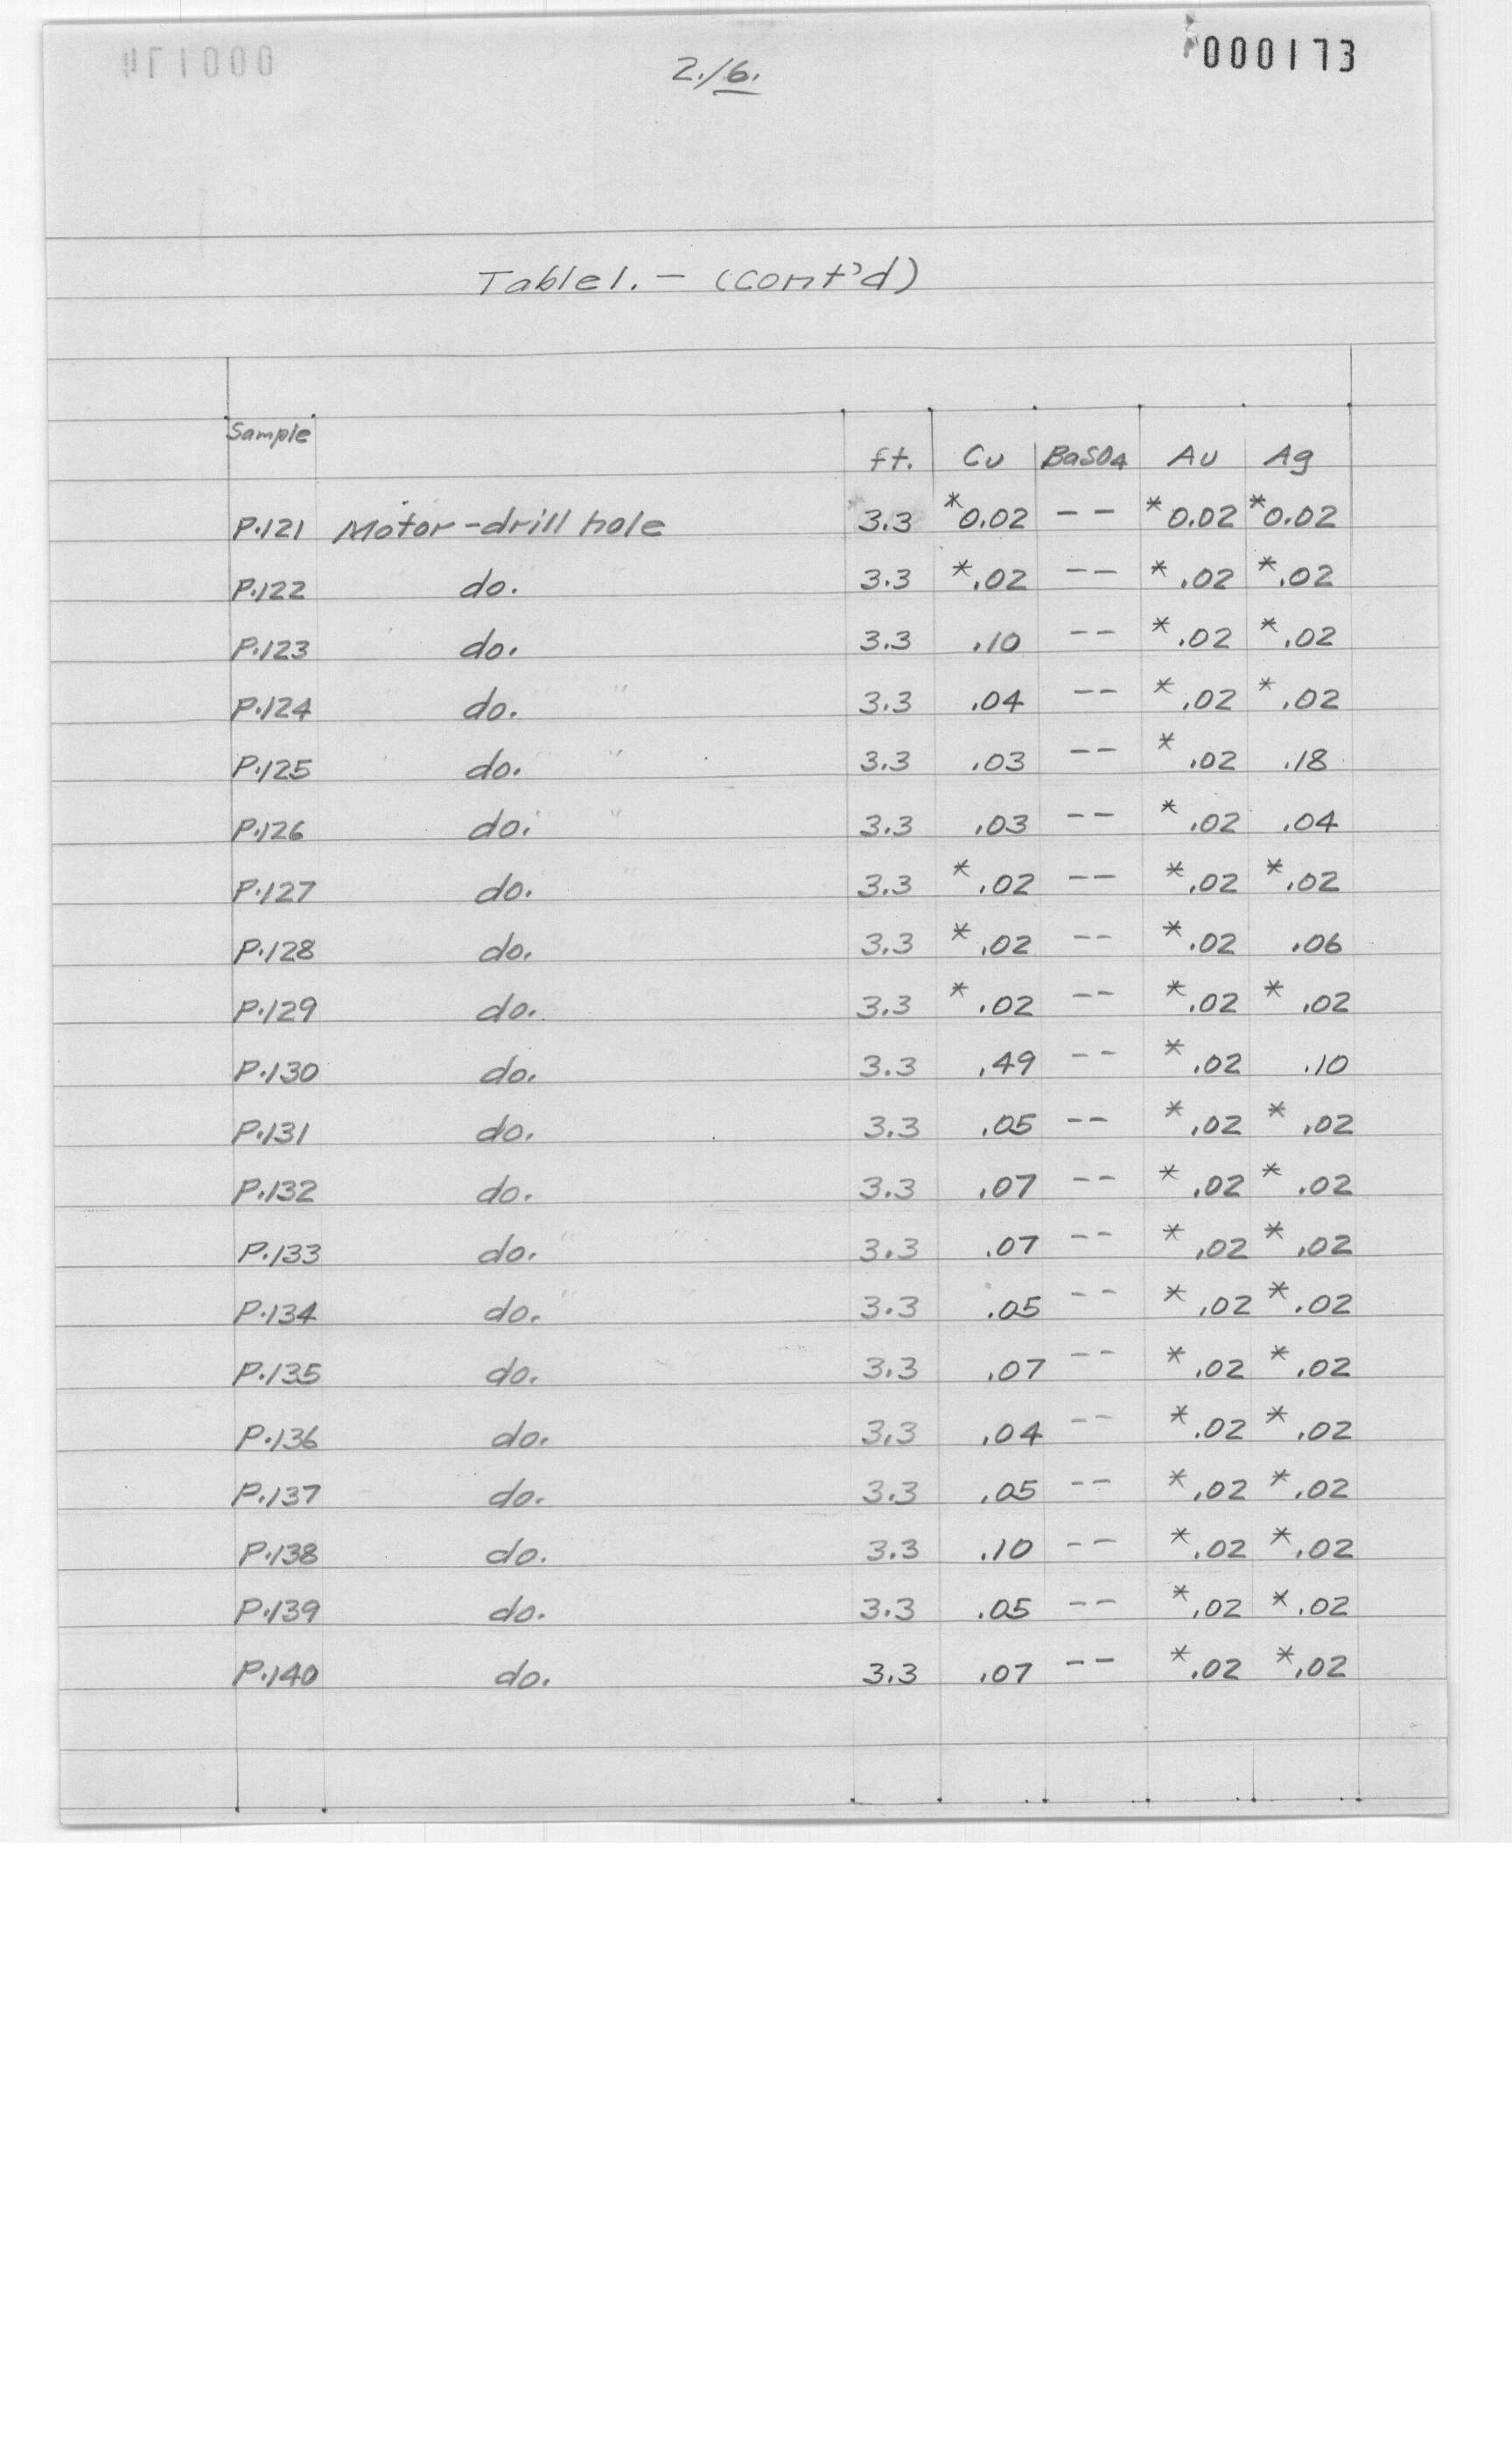 000173
2./6.
Table 1. - (cont'd)
Sample ft. Cu BaSO4 Au Ag
P.121 Motor-drill hole 3.3 *0.02 -- *0.02 *0.02
P.122 do. 3.3 *.02 -- *.02 *.02
P.123 do. 3.3 .10 -- *.02 *.02
P.124 do. 3.3 .04 -- *.02 *.02
P.125 do. 3.3 .03 -- *.02 .18
P.126 do. 3.3 .03 -- *.02 .04
P.127 do. 3.3 *.02 -- *.02 *.02
P.128 do. 3.3 *.02 -- *.02 .06
P.129 do. 3.3 *.02 -- *.02 *.02
P.130 do. 3.3 .49 -- *.02 .10
P.131 do. 3.3 .05 -- *.02 *.02
P.132 do. 3.3 .07 -- *.02 *.02
P.133 do. 3.3 .07 -- *.02 *.02
P.134 do. 3.3 .05 -- *.02 *.02
P.135 do. 3.3 .07 -- *.02 *.02
P.136 do. 3.3 .04 -- *.02 *.02
P.137 do. 3.3 .05 -- *.02 *.02
P.138 do. 3.3 .10 -- *.02 *.02
P.139 do. 3.3 .05 -- *.02 *.02
P.140 do. 3.3 .07 -- *.02 *.02